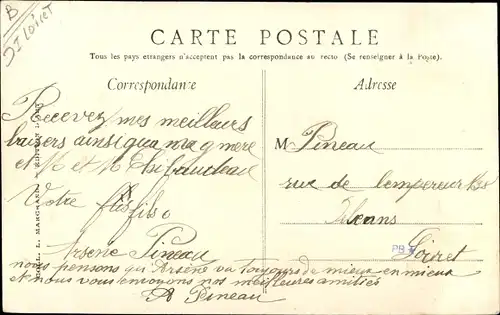 B
DI Loiret
CARTE POSTALE
Tous les pays etrangers n'acceptent pas la correspondance au recto (Se renseigner à la Poste).
Correspondance
Adresse
Recevez mes meilleurs
baisers ainsi qua ma g mere
et M et M Thibaudeau
Votre fils
Arsene Pineau
nous pensons que Arsène va toujours de mieux en mieux
et nous vous envoyons nos meilleures amitiés
A Pineau
M Pineau
rue de lempereur
Orleans
Loiret
PB
L. MARCHAND